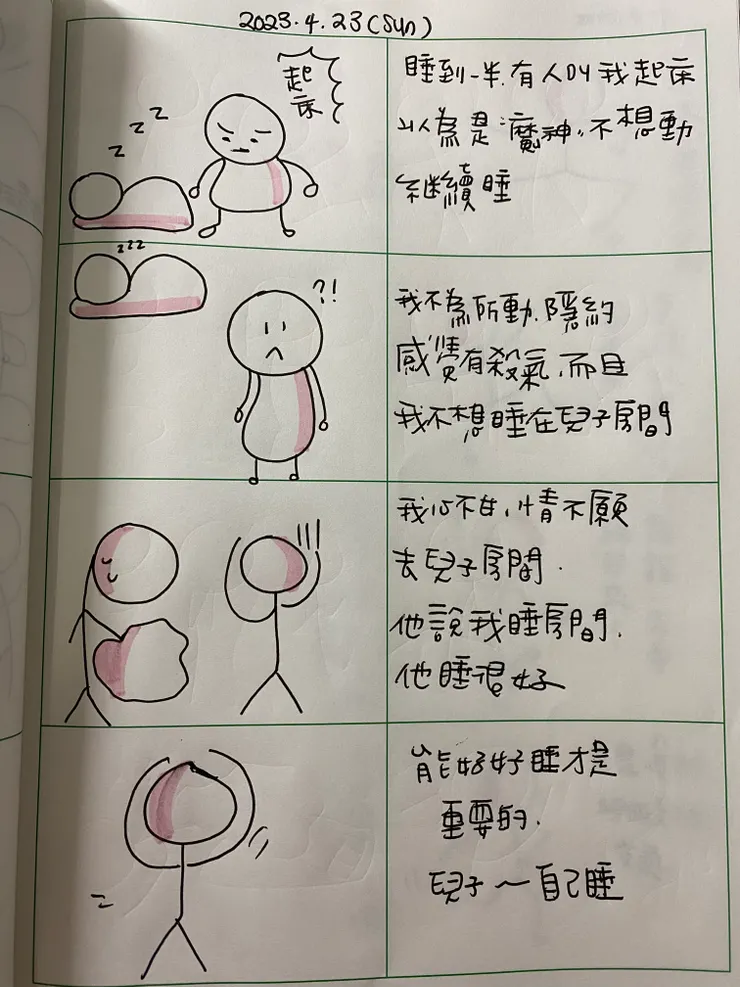 2023.4.23(Sun)
起床
z z z
睡到一半,有人叫我起床
以為是"魔神",不想動
繼續睡
zzz
?!
我不為所動,隱約
感覺有殺氣,而且
我不想睡在兒子房間
我心不甘,情不願
去兒子房間.
他說我睡房間,
他睡很好
能好好睡才是
重要的.
兒子～自己睡